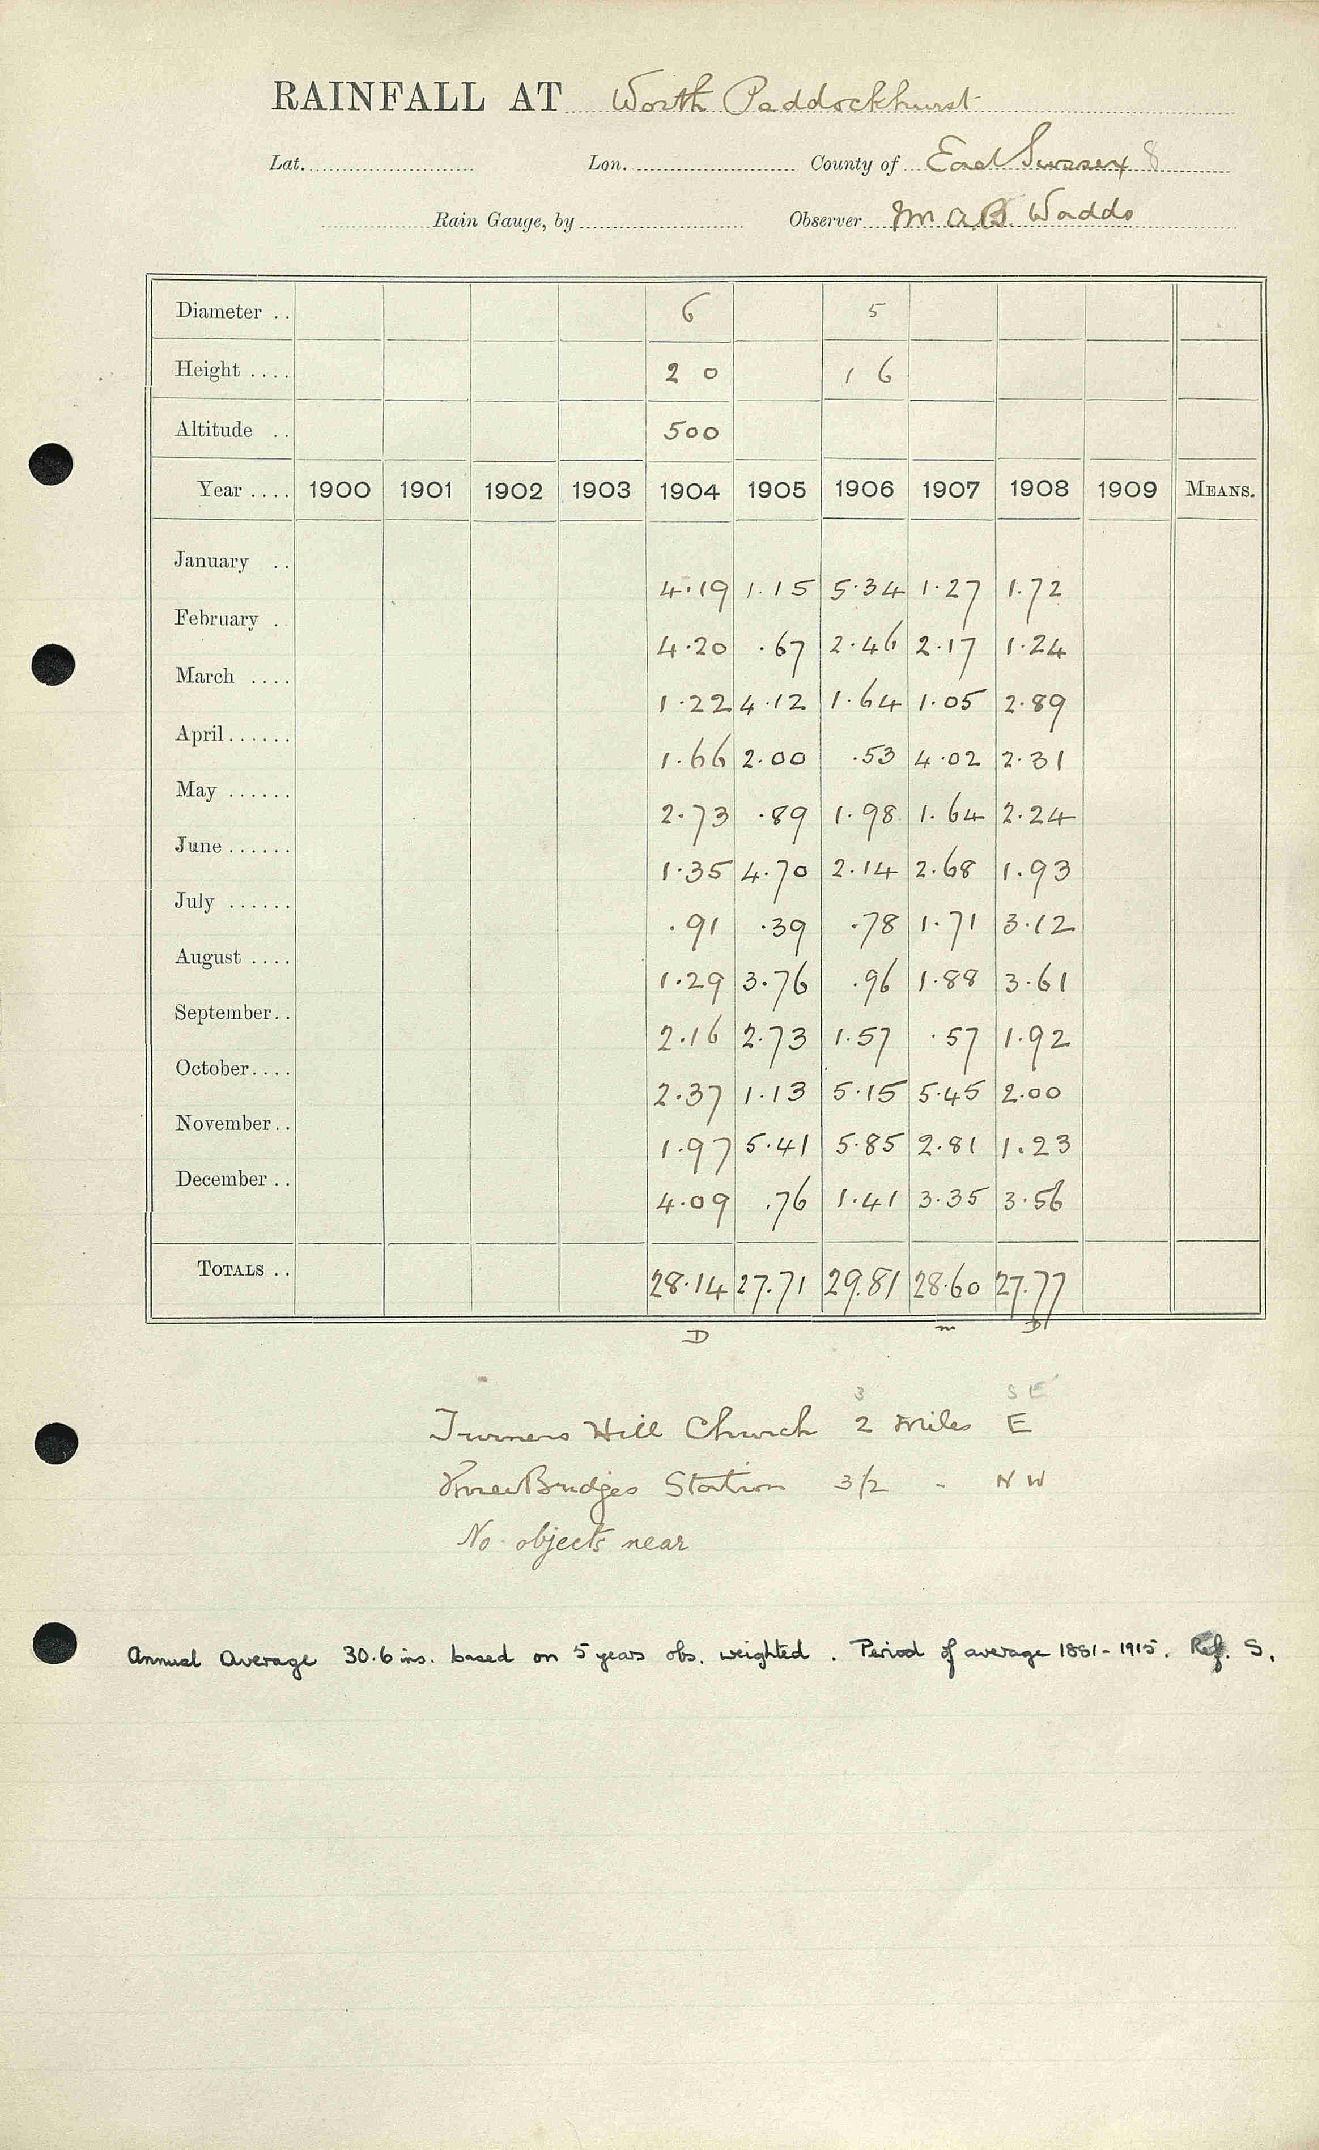 RAINFALL AT Worth Paddockhurst
Lat. Lon. County of East Sussex 8
Rain Gauge, by Observer Mr A.B. Wadds
Diameter .. 6 5
Height .... 2 0 1 6
Altitude .. 500
Year .... 1900 1901 1902 1903 1904 1905 1906 1907 1908 1909 MEANS.
January .. 4.19 1.15 5.34 1.27 1.72
February . 4.20 .67 2.46 2.17 1.24
March .... 1.22 4.12 1.64 1.05 2.89
April...... 1.66 2.00 .53 4.02 2.31
May ...... 2.73 .89 1.98 1.64 2.24
June ...... 1.35 4.70 2.14 2.68 1.93
July ...... .91 .39 .78 1.71 3.12
August .... 1.29 3.76 .96 1.88 3.61
September.. 2.16 2.73 1.57 .57 1.92
October.... 2.37 1.13 5.15 5.45 2.00
November.. 1.97 5.41 5.85 2.81 1.23
December .. 4.09 .76 1.41 3.35 3.56
TOTALS .. 28.14 27.71 29.81 28.60 27.77
D m D
3 SE
Turners Hill Church 2 Miles E
Three Bridges Station 3½ " NW
No objects near
Annual Average 30.6 ins. based on 5 years obs. weighted. Period of average 1881-1915. Ref. S.